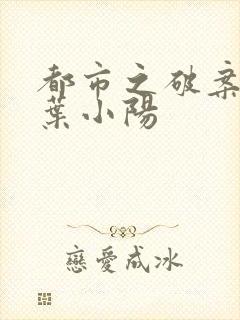 都市之破案
葉小陽
戀愛成冰